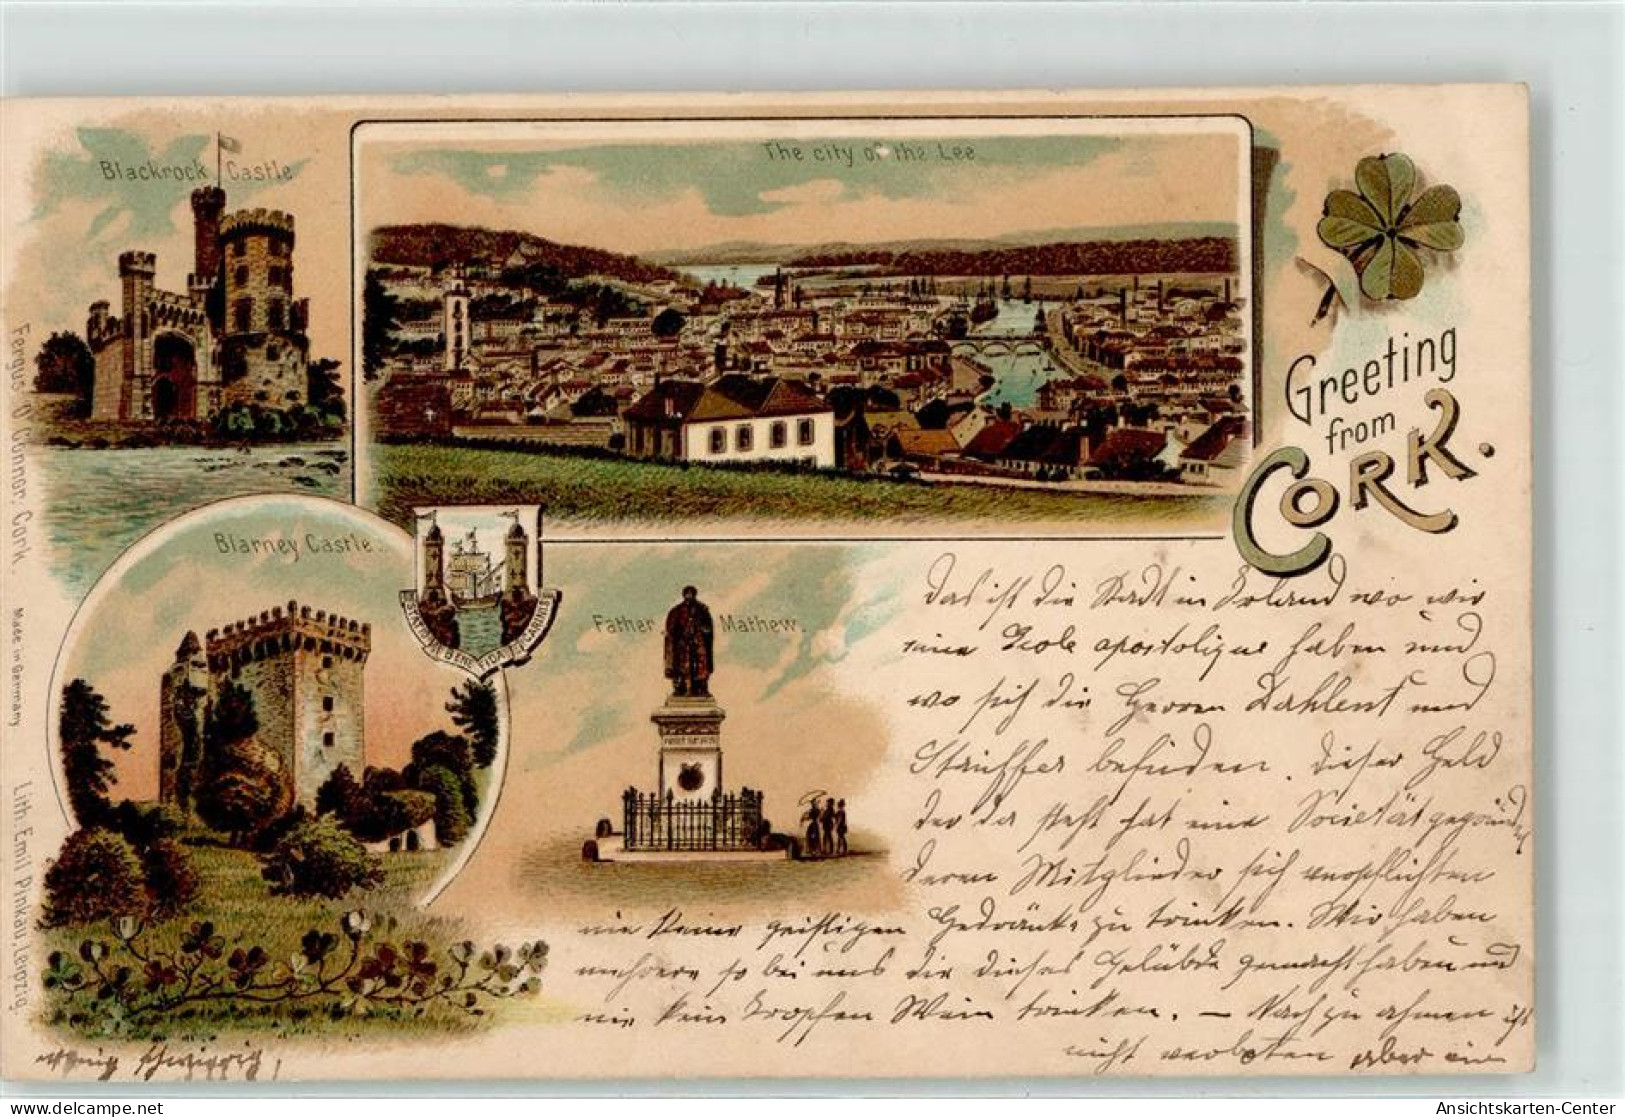 Blackrock Castle
The city of the Lee
Greeting
from
CORK.
Blarney Castle.
STATIO BENE FIDA CARINIS
Father Mathew.
Fergus O'Connor, Cork. Made in Germany Lith. Emil Pinkau, Leipzig.
Das ist die Stadt in Irland wo wir
eine École apostolique haben und
wo sich die Herren Dahlent und
Stauffer befinden. Dieser Held
der da steht hat eine Societät gegründet
deren Mitglieder sich verpflichten
nie keine geistigen Getränke zu trinken. Wir haben
mehrere so bei uns die dieses Gelübde gemacht haben und
nie kein Tropfen Wein trinken. – Nachzuahmen ist
nicht verboten aber ein
wenig schwierig,
Ansichtskarten-Center